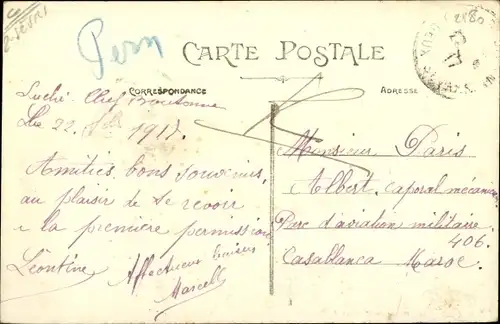 2 Sèvres
Pern
CARTE POSTALE
CORRESPONDANCE
ADRESSE
Chef Boutonne
Le 22 1917.
Amitiés, bons souvenirs,
au plaisir de se revoir
a la première permission
Léontine
Affectueux baisers
Marcell
Monsieur Paris
Albert, caporal mécanicien
Parc d'aviation militaire
406.
Casablanca Maroc.